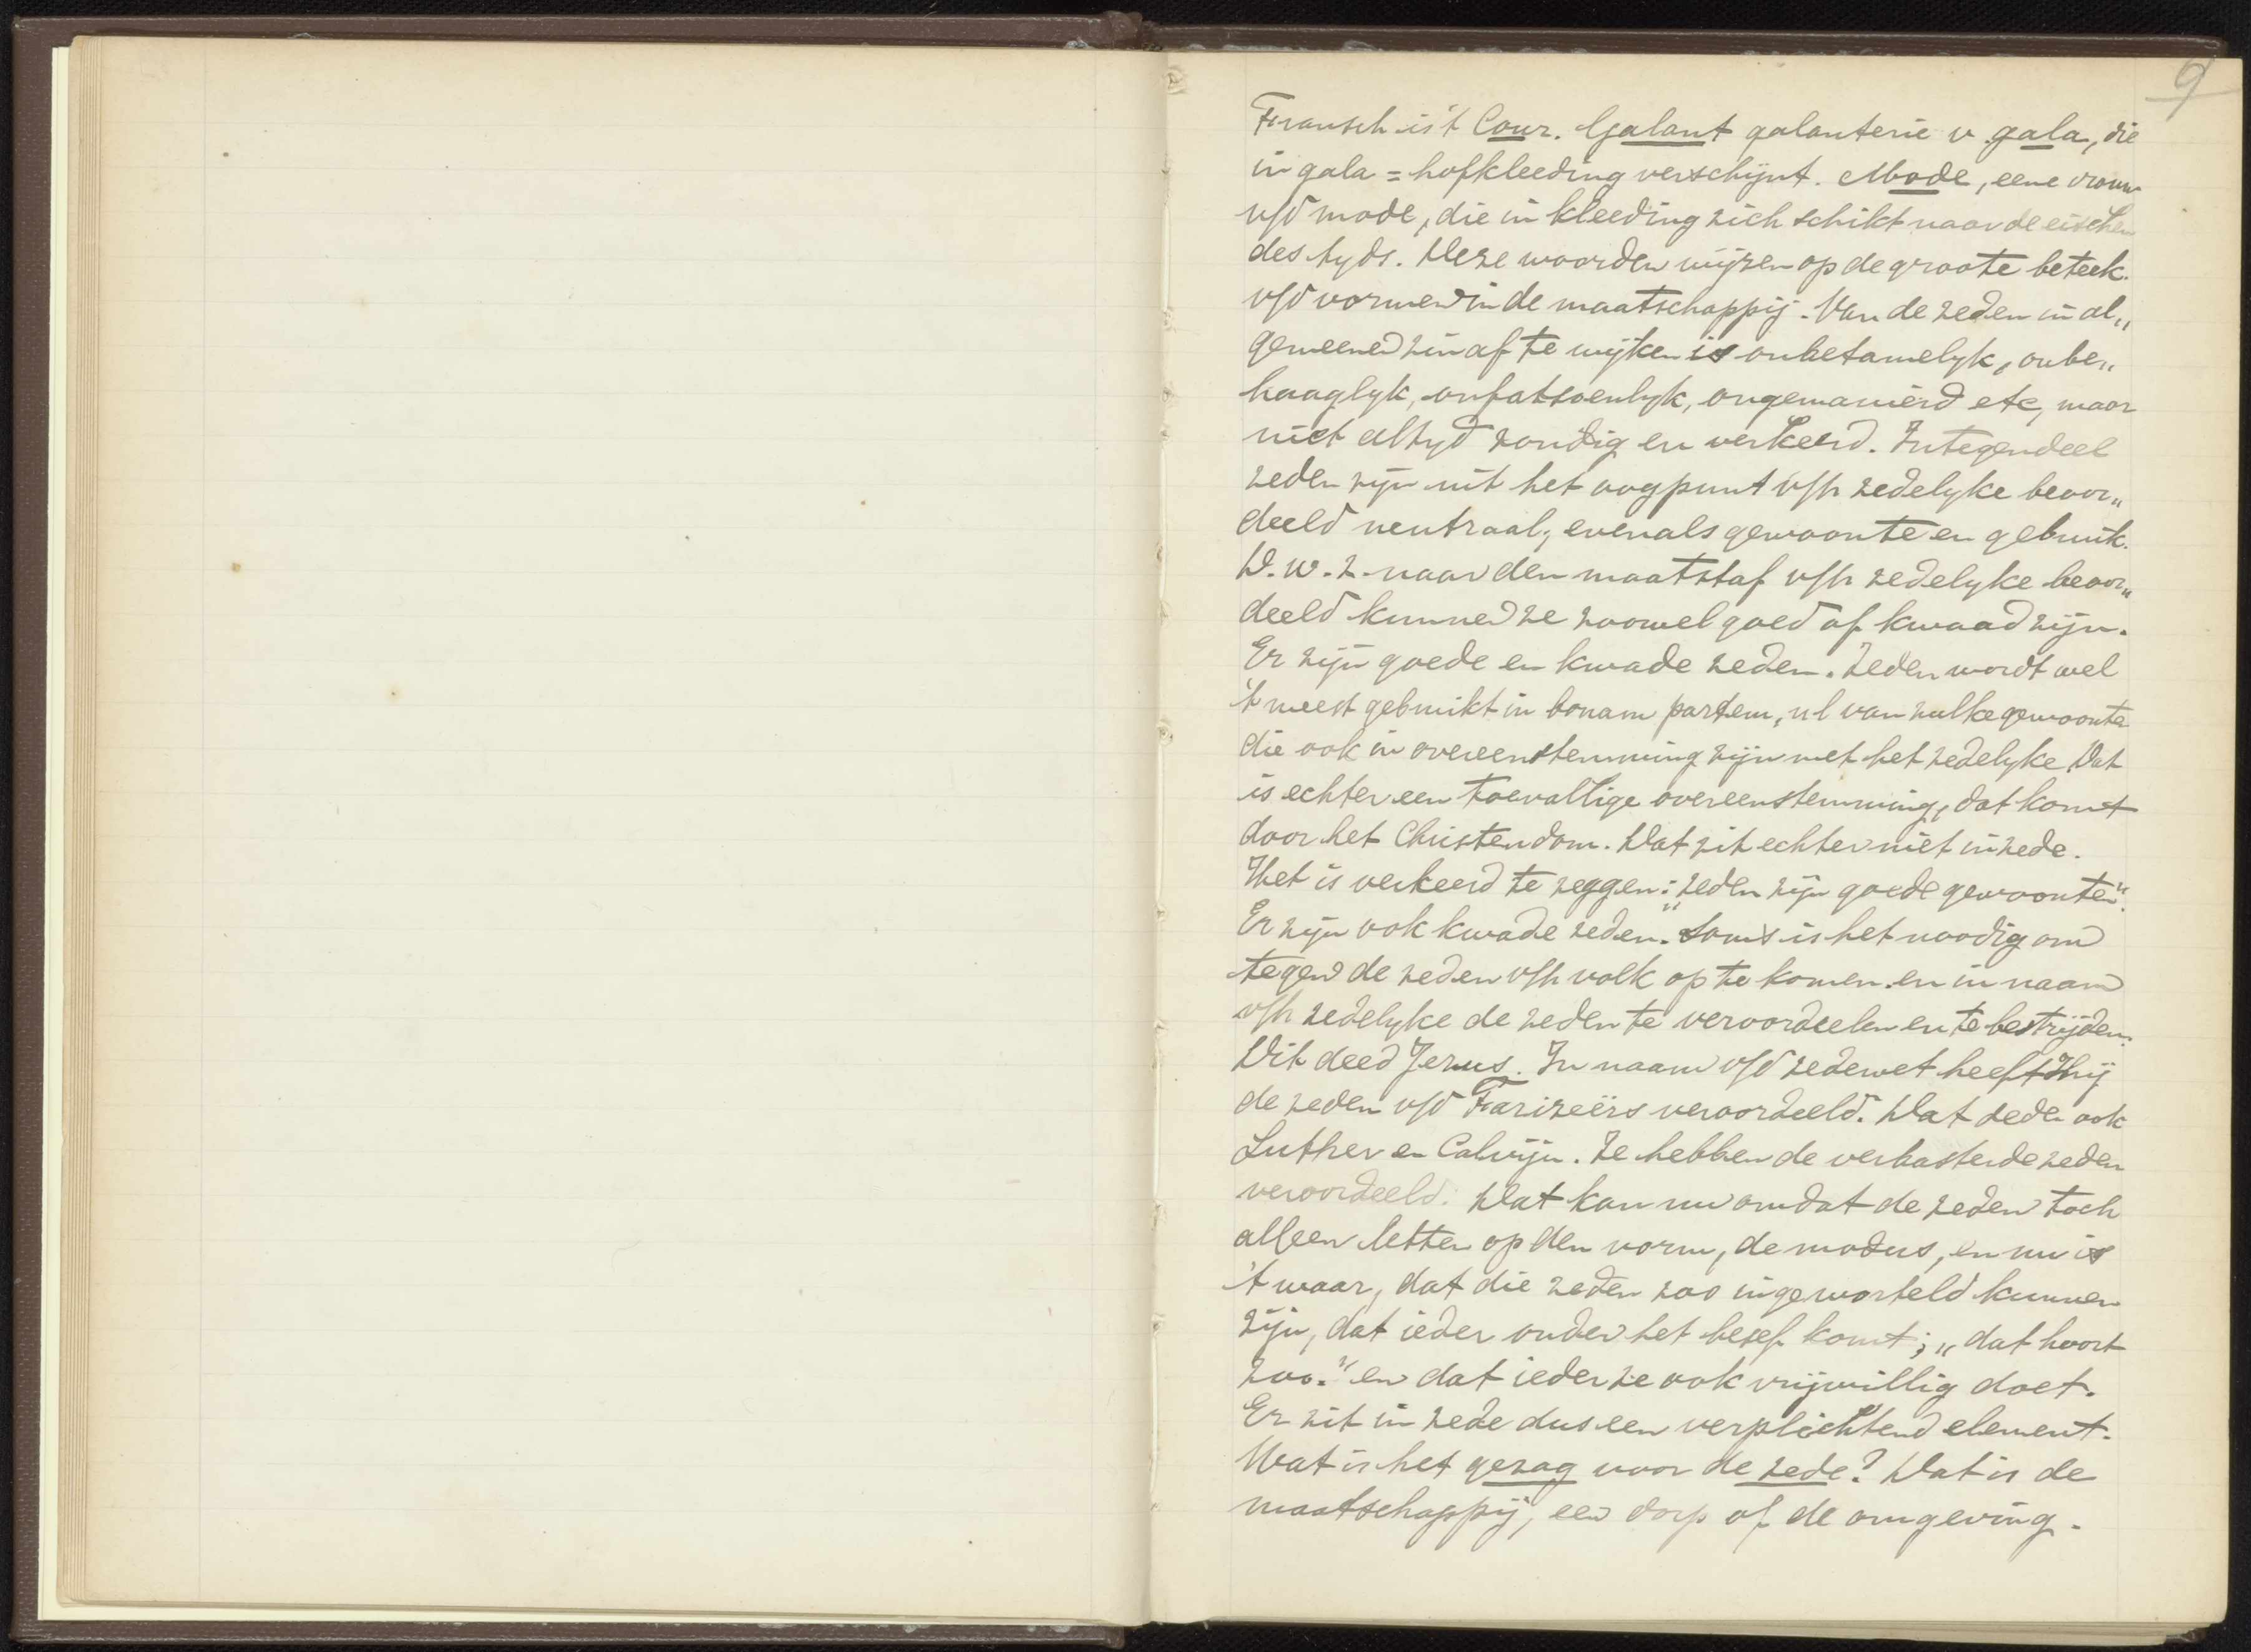 9
Fransch is 't Cour. Galant galanterie v gala, die
in gala = hofkleeding verschijnt. Mode, eene vrouw
v/d mode, die in kleeding zich schikt naar de eischen
des tyds. Deze woorden wijzen op de groote beteek.
v/d vormen in de maatschappij. Van de zeden in al„
gemeenen zin af te wijken is onbetamelyk, onbe„
haaglyk, onfatsoenlyk, ongemanierd etc, maar
niet altyd zondig en verkeerd. Integendeel
zeden zijn uit het oogpunt v/h zedelyke beoor„
deeld neutraal, evenals gewoonte en gebruik.
D.w.z. naar den maatstaf v/h zedelyke beoor„
deeld kunnen ze zoowel goed of kwaad zijn.
Er zijn goede en kwade zeden. Zeden wordt wel
't meest gebruikt in bonam partem, nl van zulke gewoonten
die ook in overeenstemming zijn met het zedelyke Dat
is echter een toevallige overeenstemming, dat komt
door het Christendom. Dat zit echter niet in zede.
Het is verkeerd te zeggen: „zeden zijn goede gewoonten".
Er zijn ook kwade zeden. Soms is het noodig om
tegen de zeden v/h volk op te komen en in naam
v/h zedelyke de zeden te veroordeelen en te bestrijden.
Dit deed Jezus. In naam v/d zedewet heeft Hij
de zeden v/d Farizeërs veroordeeld. Dat deden ook
Luther en Calvijn. Ze hebben de verbasterde zeden
veroordeeld. Dat kan nu omdat de zeden toch
alleen letten op den vorm, de modus, en nu is
't waar, dat die zeden zoo ingeworteld kunnen
zijn, dat ieder onder het besef komt; „dat hoort
zoo." en dat ieder ze ook vrijwillig doet.
Er zit in zede dus een verplichtend element.
Wat is het gezag voor de zede? Dat is de
maatschappij, een dorp of de omgeving.